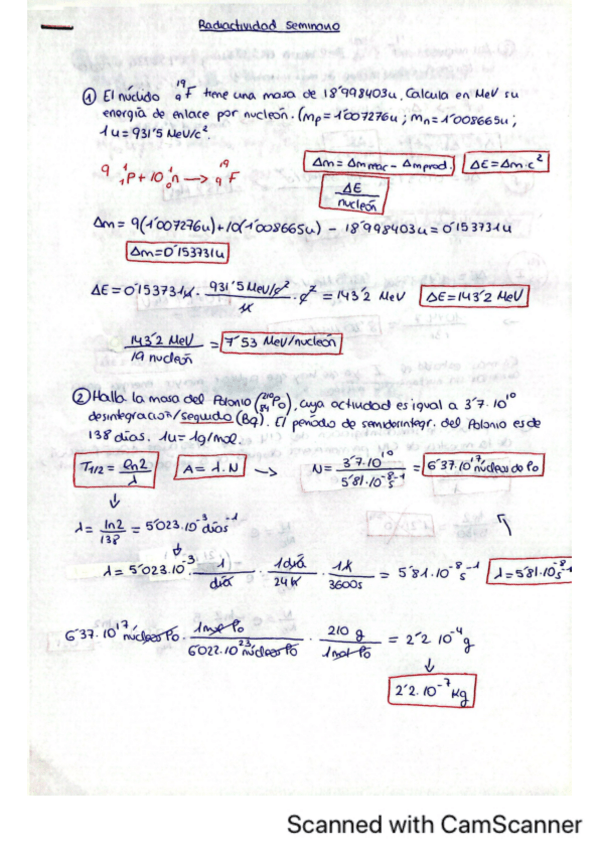 Radiactividad Seminario
① El núclido ¹⁹₉F tiene una masa de 18'998403u. Calcula en MeV su
energía de enlace por nucleón. (mp = 1'007276u ; mn = 1'008665u ;
1u = 931'5 MeV/c².
9 ¹₁p + 10 ¹₀n → ¹⁹₉F
Δm = Δm reac − Δm prod. ΔE = Δm·c²
ΔE/nucleón
Δm = 9(1'007276u) + 10(1'008665u) − 18'998403u = 0'153731u
Δm = 0'153731u
ΔE = 0'153731u · 931'5 MeV/c²/u · c² = 143'2 MeV ΔE = 143'2 MeV
143'2 MeV/19 nucleón = 7'53 MeV/nucleón
② Halla la masa del Polonio (²¹⁰₈₄Po), cuya actividad es igual a 3'7·10¹⁰
desintegracioⁿ/segundo (Bq). El período de semidesintegr. del Polonio es de
138 días. 1u = 1g/mol.
T1/2 = ln2/λ A = λ·N → N = 3'7·10¹⁰/5'81·10⁻⁸ s⁻¹ = 6'37·10¹⁷ núcleos de Po
↓
λ = ln2/138 = 5'023·10⁻³ días⁻¹
↓
λ = 5'023·10⁻³ · 1/día · 1día/24h · 1h/3600s = 5'81·10⁻⁸ s⁻¹ λ = 5'81·10⁻⁸ s⁻¹
6'37·10¹⁷ núcleos Po · 1mol Po/6'022·10²³ núcleos Po · 210 g/1mol Po = 2'2 10⁻⁴ g
↓
2'2·10⁻⁷ Kg
Scanned with CamScanner